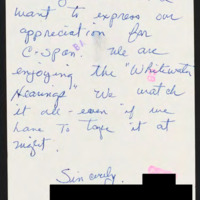 want to express our
appreciation for
C-Span. We are
enjoying the "Whitewater
Hearings" We watch
it all - even if we
have to tape it at
night.
Sincerely,